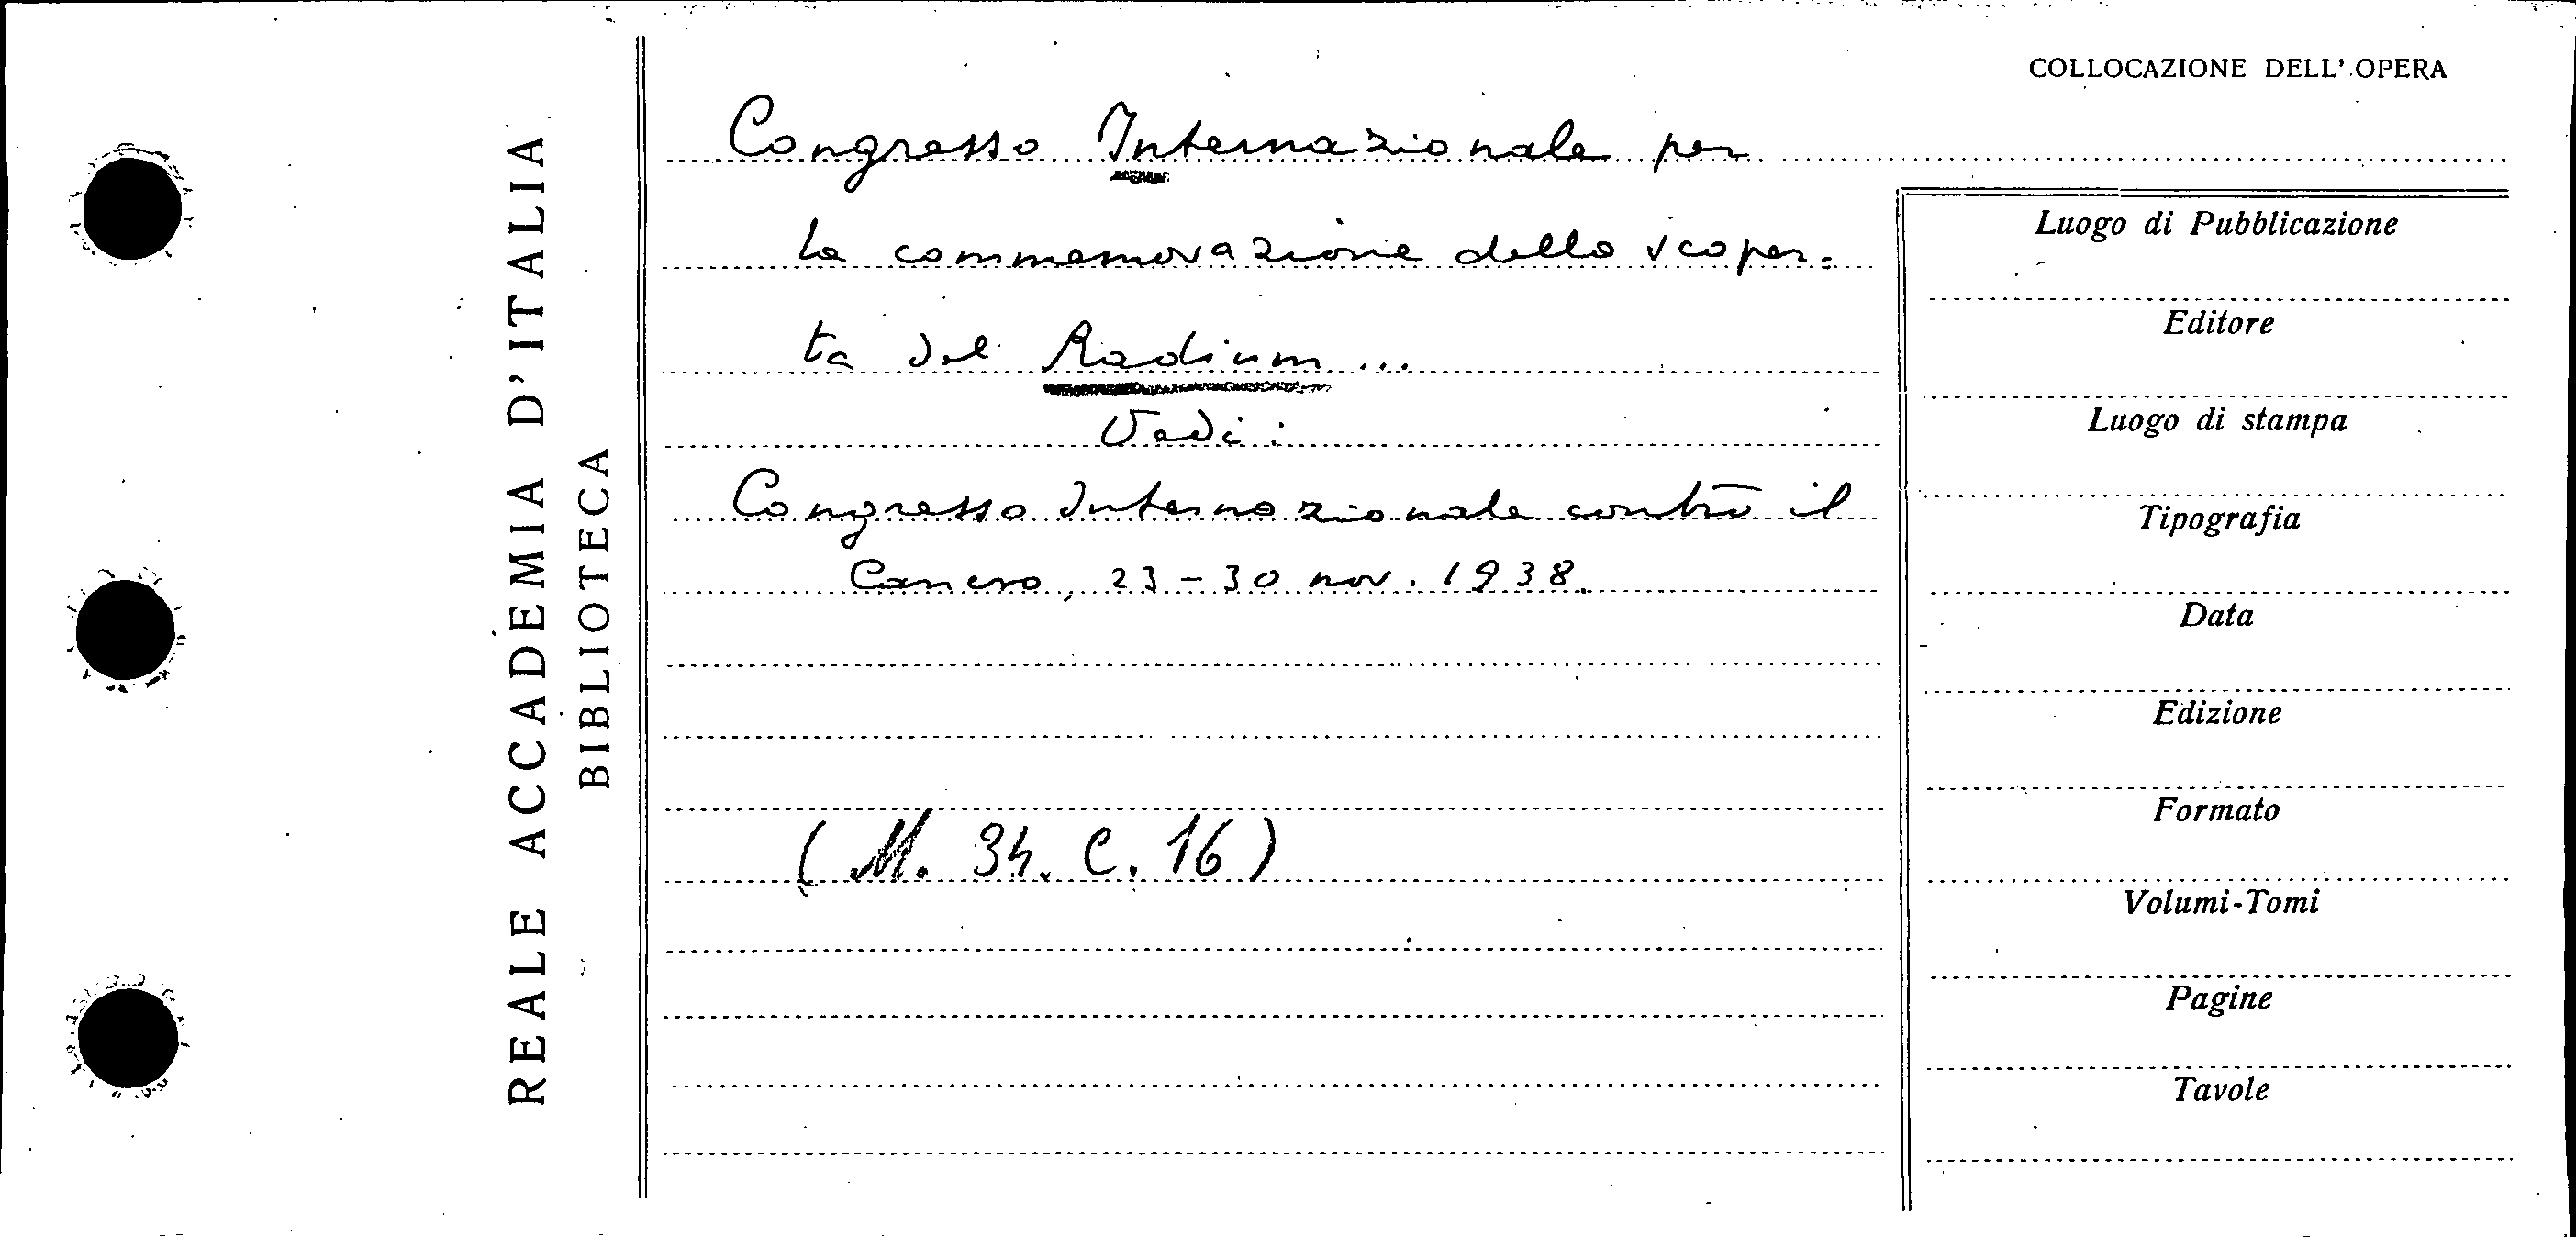 REALE ACCADEMIA D'ITALIA
BIBLIOTECA
COLLOCAZIONE DELL' OPERA
Congresso Internazionale per
la commemorazione della scoper=
ta del Radium ...
Vedi:
Congresso Internazionale contro il
Cancro, 23-30 nov. 1938.
(M. 34. C. 16)
Luogo di Pubblicazione
Editore
Luogo di stampa
Tipografia
Data
Edizione
Formato
Volumi-Tomi
Pagine
Tavole